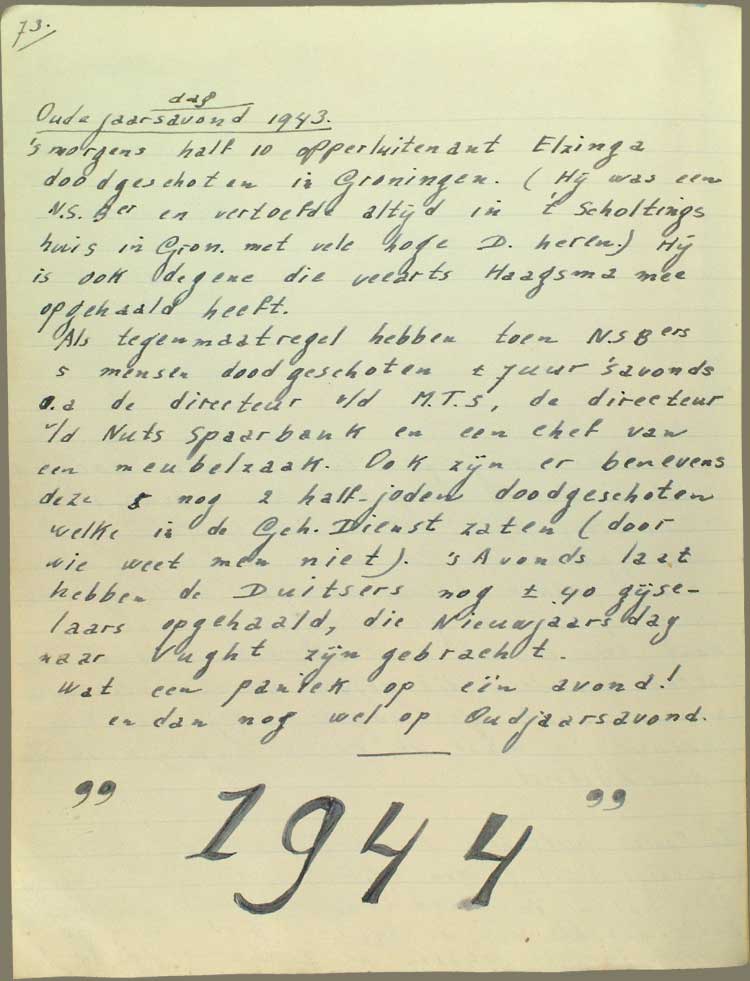 73.
dag
Oudejaarsavond 1943.
's morgens half 10 opperluitenant Elzinga
doodgeschoten in Groningen. (Hij was een
N.S.Ber en vertoefde altijd in 't Scholtings
huis in Gron. met vele hoge D. heren.) Hij
is ook degene die veearts Haagsma mee
opgehaald heeft.
Als tegenmaatregel hebben toen N.S.Bers
5 mensen doodgeschoten ± 7 uur 's avonds
o.a de directeur v/d M.T.S, de directeur
v/d Nuts Spaarbank en een chef van
een meubelzaak. Ook zijn er benevens
deze 5 nog 2 half-joden doodgeschoten
welke in de Geh. Dienst zaten (door
wie weet men niet). 's Avonds laat
hebben de Duitsers nog ± 40 gijse-
laars opgehaald, die Nieuwjaarsdag
naar Vught zijn gebracht.
Wat een paniek op eiin avond!
en dan nog wel op Oudjaarsavond.
" 1944 "